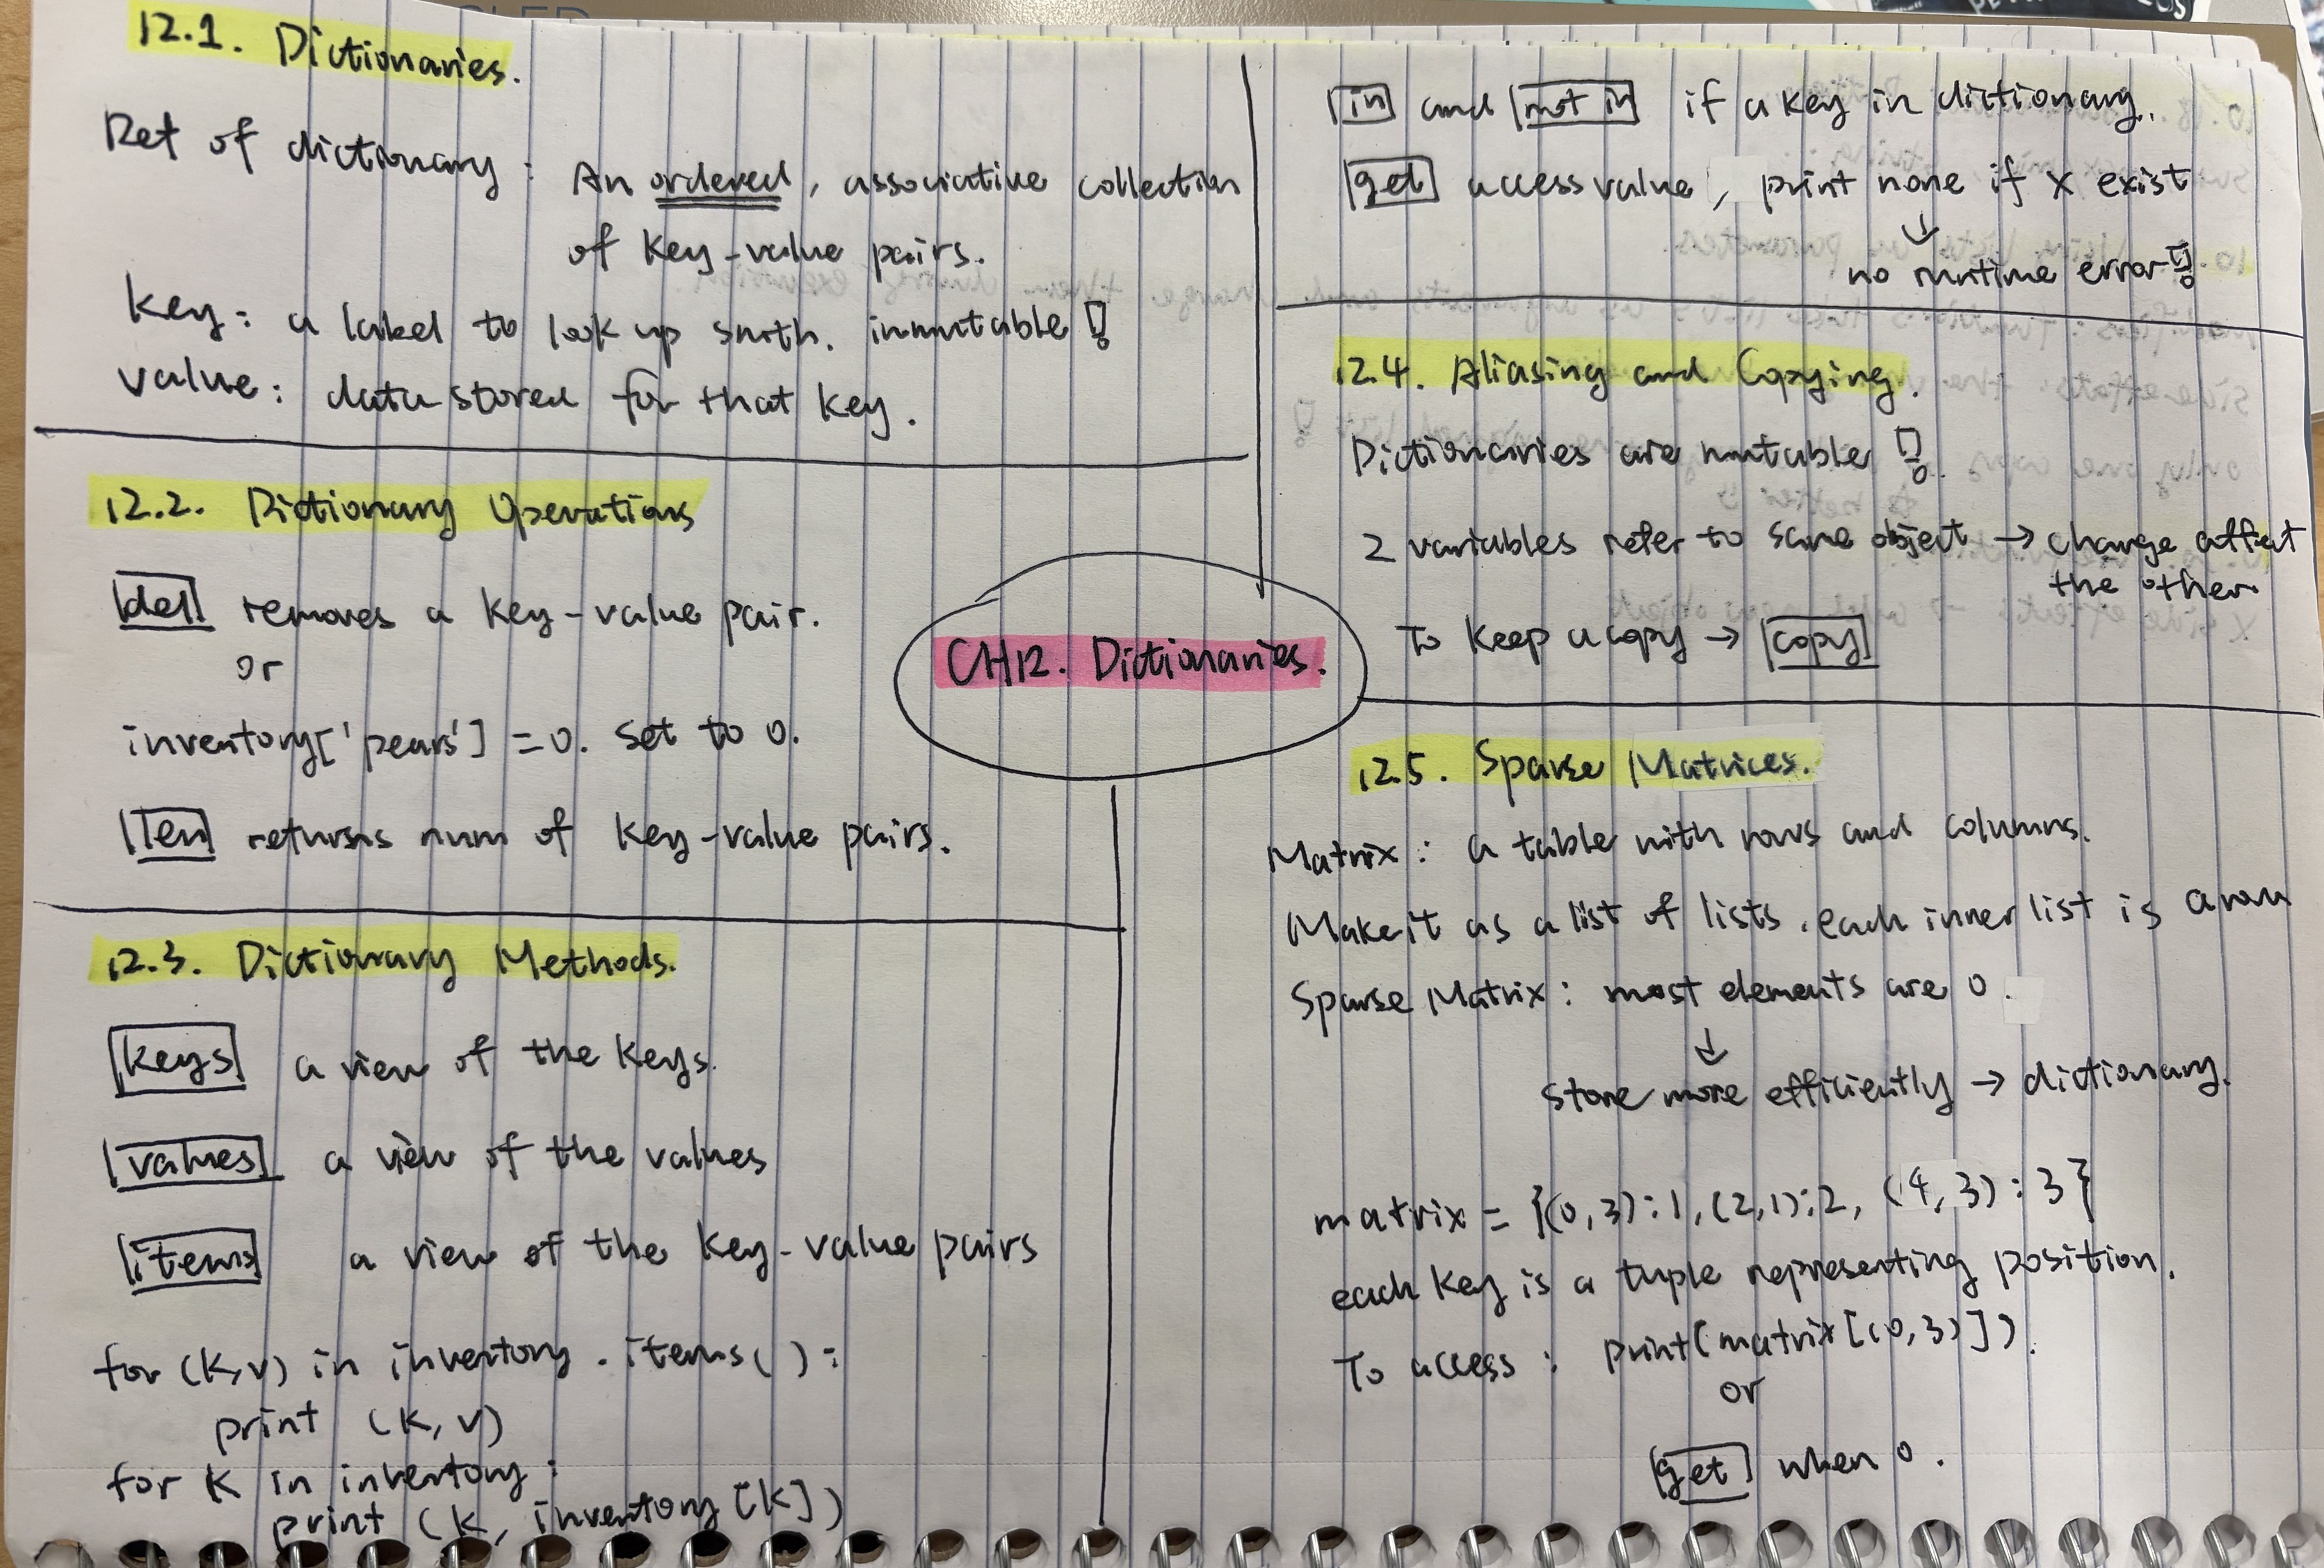 12.1. Dictionaries.
Det of dictionary : An ordered, associative collection
of key-value pairs.
Key : a label to look up smth. immutable !
Value : data stored for that key.
12.2. Dictionary Operations
del removes a key-value pair.
or
inventory['pears'] = 0. Set to 0.
len returns num of key-value pairs.
12.3. Dictionary Methods.
keys a view of the keys.
values a view of the values
items a view of the key-value pairs
for (k,v) in inventory.items():
print (k, v)
for k in inventory:
print (k, inventory[k])
CH12. Dictionaries.
in and not in if a key in dictionary.
get access value, print none if x exist
↓
no runtime error !
12.4. Aliasing and Copying.
Dictionaries are mutable !
2 variables refer to same object → change affect
the other
To keep a copy → copy
12.5. Sparse Matrices.
Matrix : a table with rows and columns.
Make it as a list of lists, each inner list is a row
Sparse Matrix : most elements are 0.
↓
store more efficiently → dictionary.
matrix = {(0,3):1, (2,1):2, (4,3):3}
each key is a tuple representing position.
To access : print(matrix[(0,3)]).
or
get when 0.